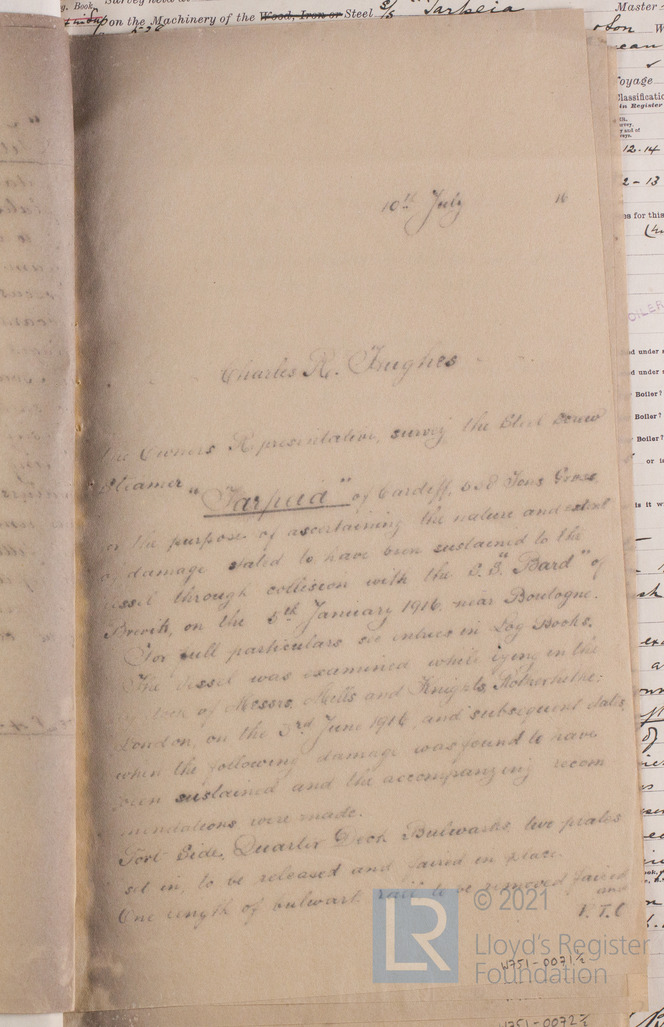 on the Machinery of the Wood, Iron or Steel S/S Tarpeia
Master
Voyage
Classification
in Register
12.14
2-13
es for this
OILER
d under
d under
Boiler?
Boiler?
Boiler?
or is
is it w
10th July 16
Charles R. Hughes
the Owners Representative, survey the Steel Screw
Steamer "Tarpeia" of Cardiff, 538 Tons Gross,
for the purpose of ascertaining the nature and extent
of damage stated to have been sustained to the
vessel through collision with the S.S. "Bard" of
Brevik, on the 5th January 1916 near Boulogne.
For full particulars see entries in Log Books.
The Vessel was examined while lying in the
dock of Messrs. Mills and Knights, Rotherhithe:
London, on the 3rd June 1916, and subsequent dates,
when the following damage was found to have
been sustained and the accompanying recom
mendations were made.
Port Side, Quarter Deck Bulwarks, two plates
set in, to be released and faired in place.
One length of bulwark rail to be removed faired
and
P.T.O
© 2021
LR
Lloyd's Register
Foundation
W751-0071½
W751-0072½